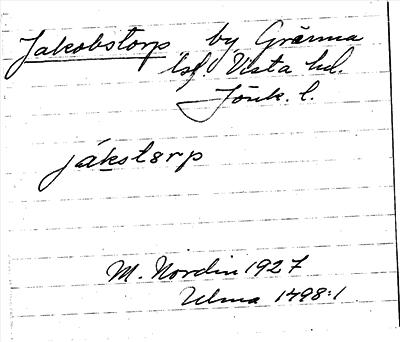 Jakobstorp by Gränna
lsf Vista hd.
Jönk. l.
jákstorp
M. Nordin 1927
Ulma 1498:1